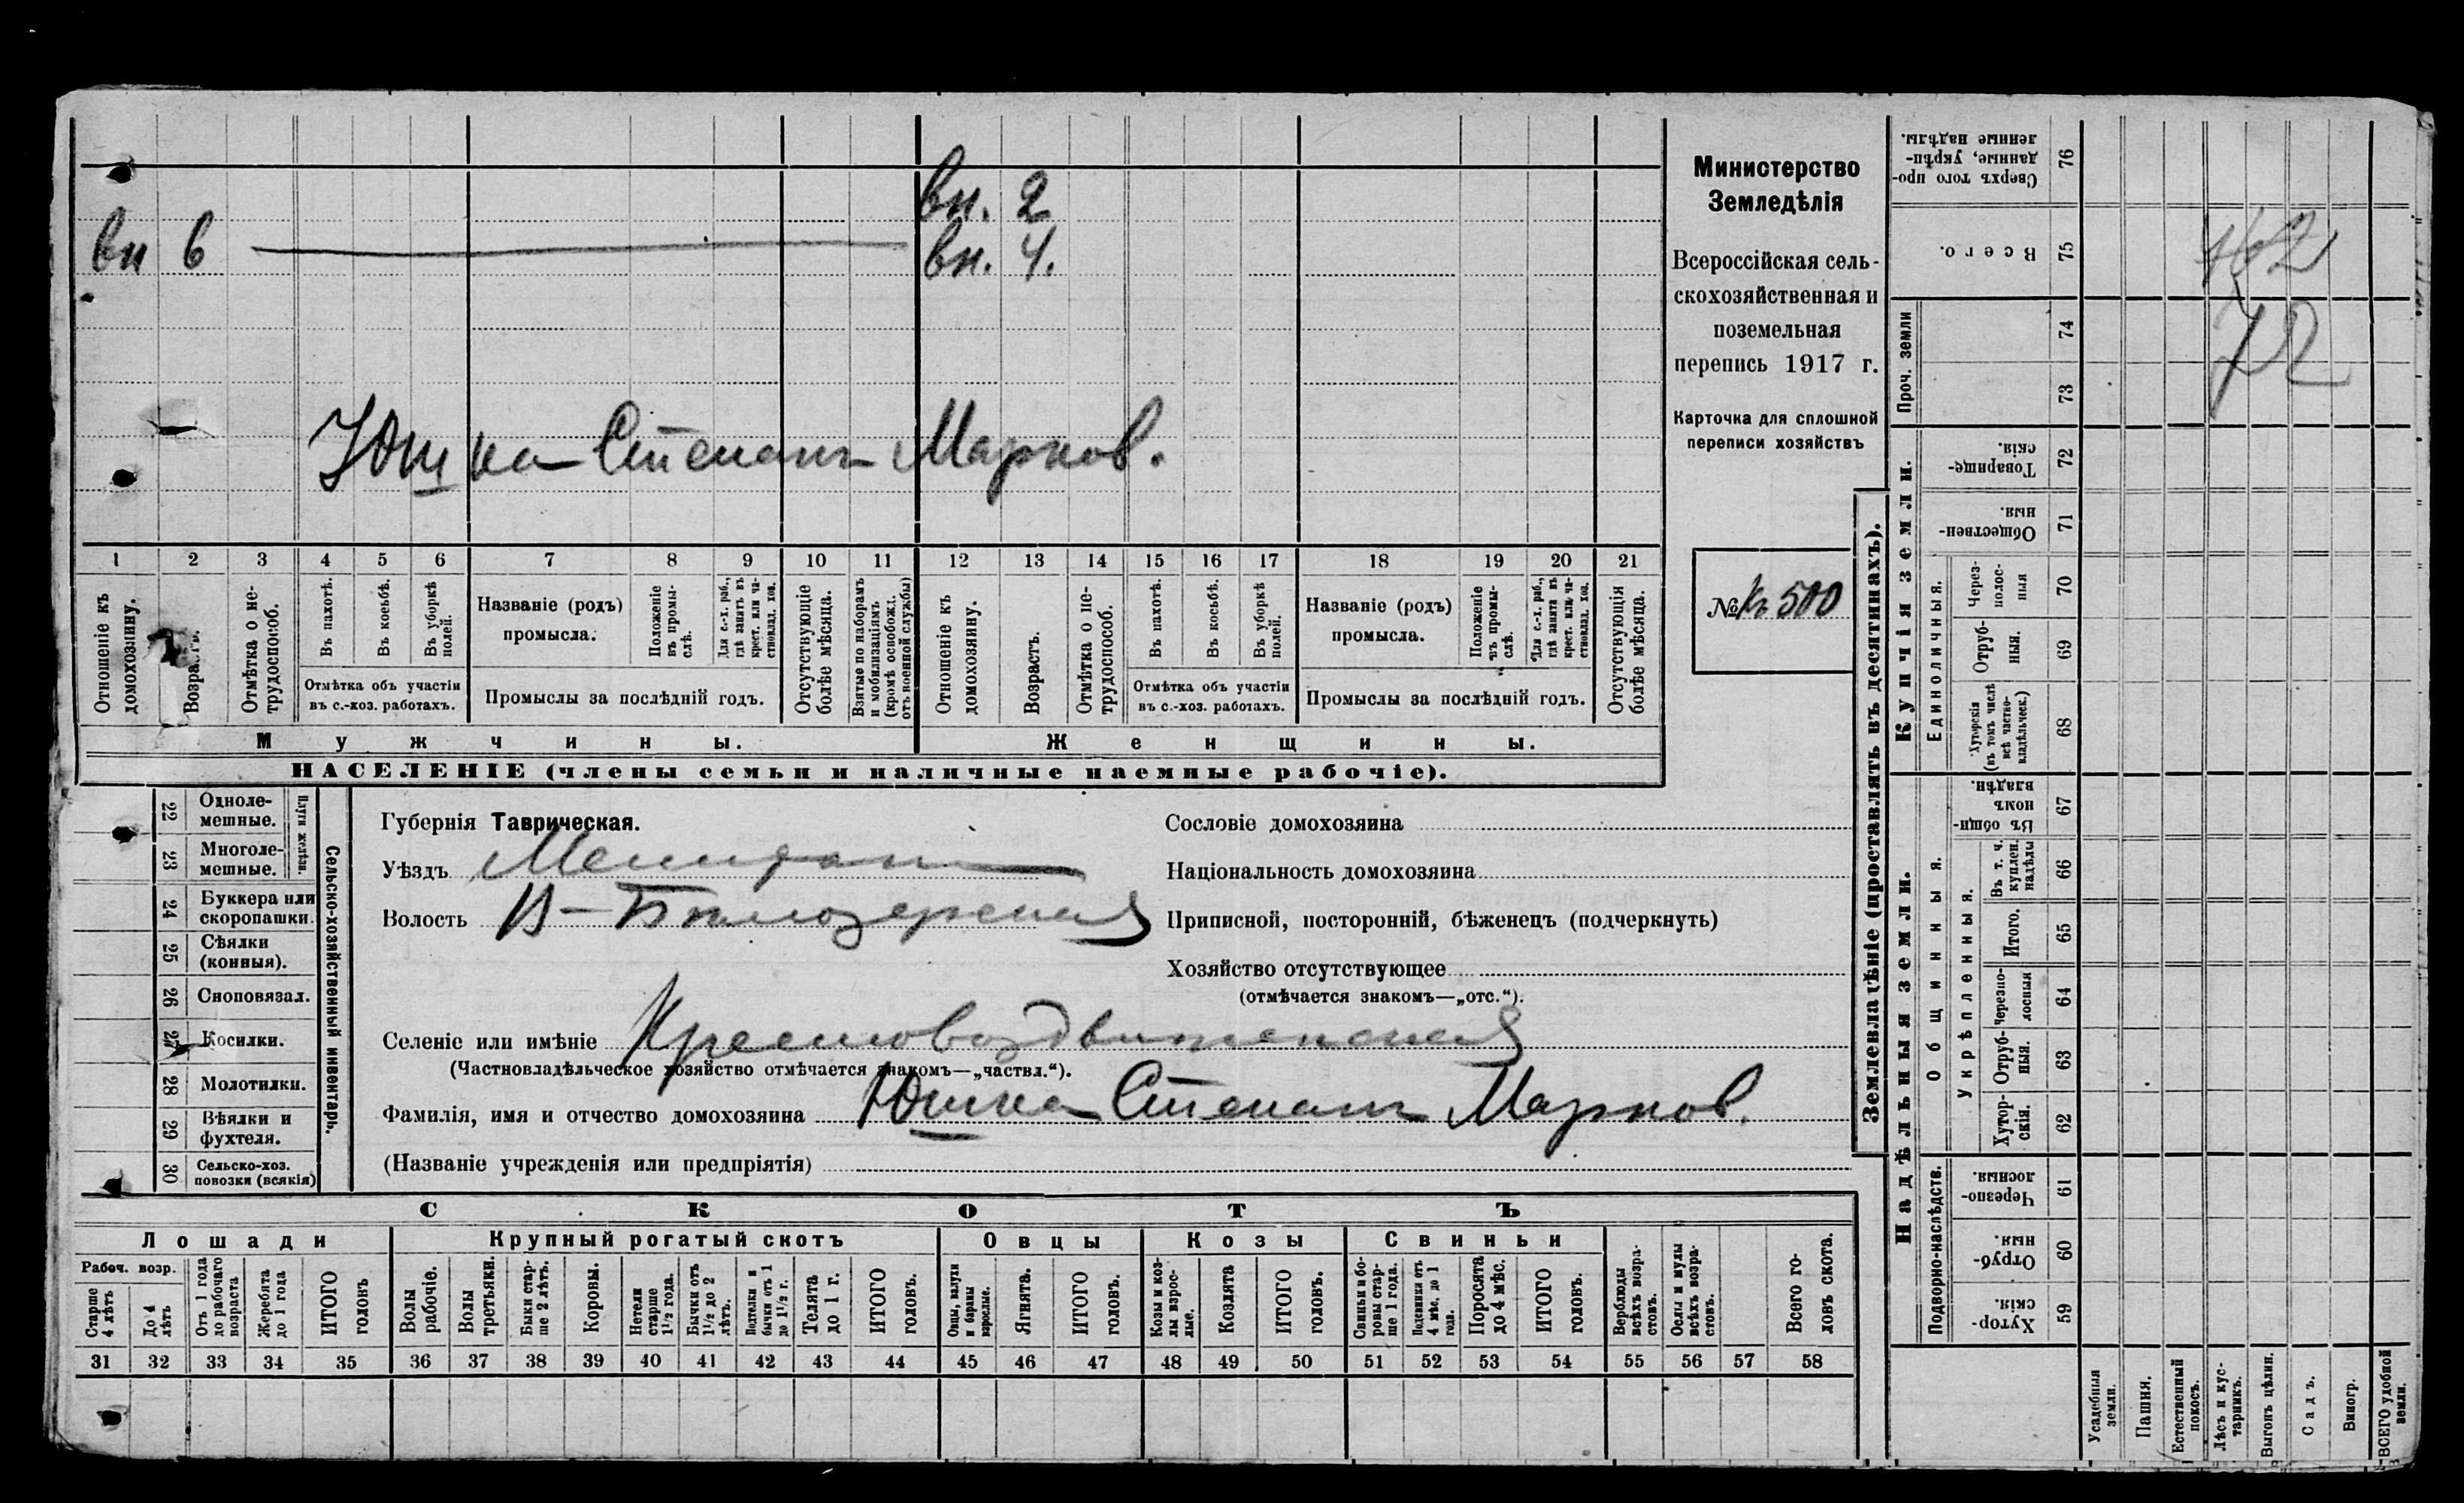 вн. 2
вн 6 вн. 4.
Юшка Степанъ Марков.
1 2 3 4 5 6 7 8 9 10 11 12 13 14 15 16 17 18 19 20 21
Отношеніе къ домохозяину.
Возрастъ.
Отмѣтка о не-трудоспособ.
Въ пахотѣ.
Въ косьбѣ.
Въ уборкѣ полей.
Отмѣтка объ участіи
въ с.-хоз. работахъ.
Названіе (родъ)
промысла.
Положеніе въ промы-слѣ.
Для с.-х. раб., гдѣ занятъ въ крест. или ча-стновлад. хоз.
Промыслы за послѣдній годъ.
Отсутствующіе болѣе мѣсяца.
Взятые по наборамъ и мобилизаціямъ (кромѣ освобожд. отъ военной службы)
Отношеніе къ домохозяину.
Возрастъ.
Отмѣтка о не-трудоспособ.
Въ пахотѣ.
Въ косьбѣ.
Въ уборкѣ полей.
Отмѣтка объ участіи
въ с.-хоз. работахъ.
Названіе (родъ)
промысла.
Положеніе въ промы-слѣ.
Для с.-х. раб., гдѣ занята въ крест. или ча-стновлад. хоз.
Промыслы за послѣдній годъ.
Отсутствующія болѣе мѣсяца.
Мужчины. Женщины.
НАСЕЛЕНІЕ (члены семьи и наличные наемные рабочіе).
Министерство
Земледѣлія
Всероссійская сель-
скохозяйственная и
поземельная
перепись 1917 г.
Карточка для сплошной
переписи хозяйствъ
№ 500
22 Одноле-мешные.
23 Многоле-мешные.
Плуги желѣзн.
24 Буккера или скоропашки.
25 Сѣялки (конныя).
26 Сноповязал.
27 Косилки.
28 Молотилки.
29 Вѣялки и фухтеля.
30 Сельско-хоз. повозки (всякія)
Сельско-хозяйственный инвентарь.
Губернія Таврическая.
Уѣздъ Мелитоп
Волость В-Бѣлозерская
Селеніе или имѣніе Крестовоздвиженская
(Частновладѣльческое хозяйство отмѣчается знакомъ—„частвл.“).
Фамилія, имя и отчество домохозяина Юшка Степанъ Марков.
(Названіе учрежденія или предпріятія)
Сословіе домохозяина
Національность домохозяина
Приписной, посторонній, бѣженецъ (подчеркнуть)
Хозяйство отсутствующее
(отмѣчается знакомъ—„отс.“).
СКОТЪ
Лошади Крупный рогатый скотъ Овцы Козы Свиньи
Рабоч. возр.
Старше 4 лѣтъ
До 4 лѣтъ
Отъ 1 года до рабочаго возраста
Жеребята до 1 года
ИТОГО головъ
Волы рабочіе.
Волы третьяки.
Быки стар-ше 2 лѣтъ.
Коровы.
Нетели старше 1½ года.
Бычки отъ 1½ до 2 лѣтъ.
Подтелки и бычки отъ 1 до 1½ г.
Телята до 1 г.
ИТОГО головъ.
Овцы, валухи и бараны взрослые.
Ягнята.
ИТОГО головъ.
Козы и коз-лы взрос-лые.
Козлята
ИТОГО головъ.
Свиньи и бо-ровы стар-ше 1 года.
Подсвинки отъ 4 мѣс. до 1 года.
Поросята до 4 мѣс.
ИТОГО головъ.
Верблюды всѣхъ возра-стовъ.
Ослы и мулы всѣхъ возра-стовъ.
Всего го-ловъ скота.
31 32 33 34 35 36 37 38 39 40 41 42 43 44 45 46 47 48 49 50 51 52 53 54 55 56 57 58
Землевладѣніе (проставлять въ десятинахъ).
Купчія земли.
Надѣльныя земли.
76 Сверхъ того про-данные, укрѣп-ленные надѣлы.
75 Всего.
Проч. земли
74
73
72 Товарище-скія.
71 Обществен-ныя.
Единоличныя.
70 Через-полос-ныя
69 Отруб-ныя.
68 Хуторскія (въ томъ числѣ всѣ частно-владѣльческ.)
Общинныя.
67 Въ общи-номъ владѣн.
Укрѣпленныя.
66 Въ т. ч. куплен. надѣлы
65 Итого.
64 Черезпо-лосныя
63 Отруб-ныя.
62 Хутор-скія.
Подворно-наслѣдств.
61 Черезпо-лосныя.
60 Отруб-ныя.
59 Хутор-скія.
Усадебныя земли.
Пашня.
Естественный покосъ.
Лѣсъ и кус-тарникъ.
Выгонъ цѣлин.
Садъ.
Виногр.
ВСЕГО удобной земли.
72